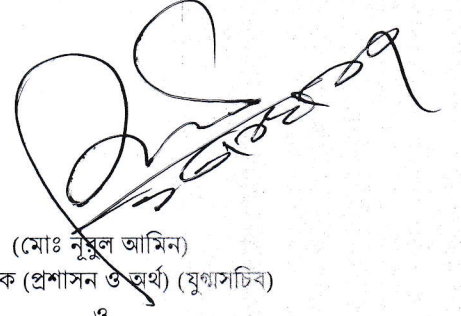 (মোঃ নূরুল আমিন)
ক (প্রশাসন ও অর্থ) (যুগ্মসচিব)
ও